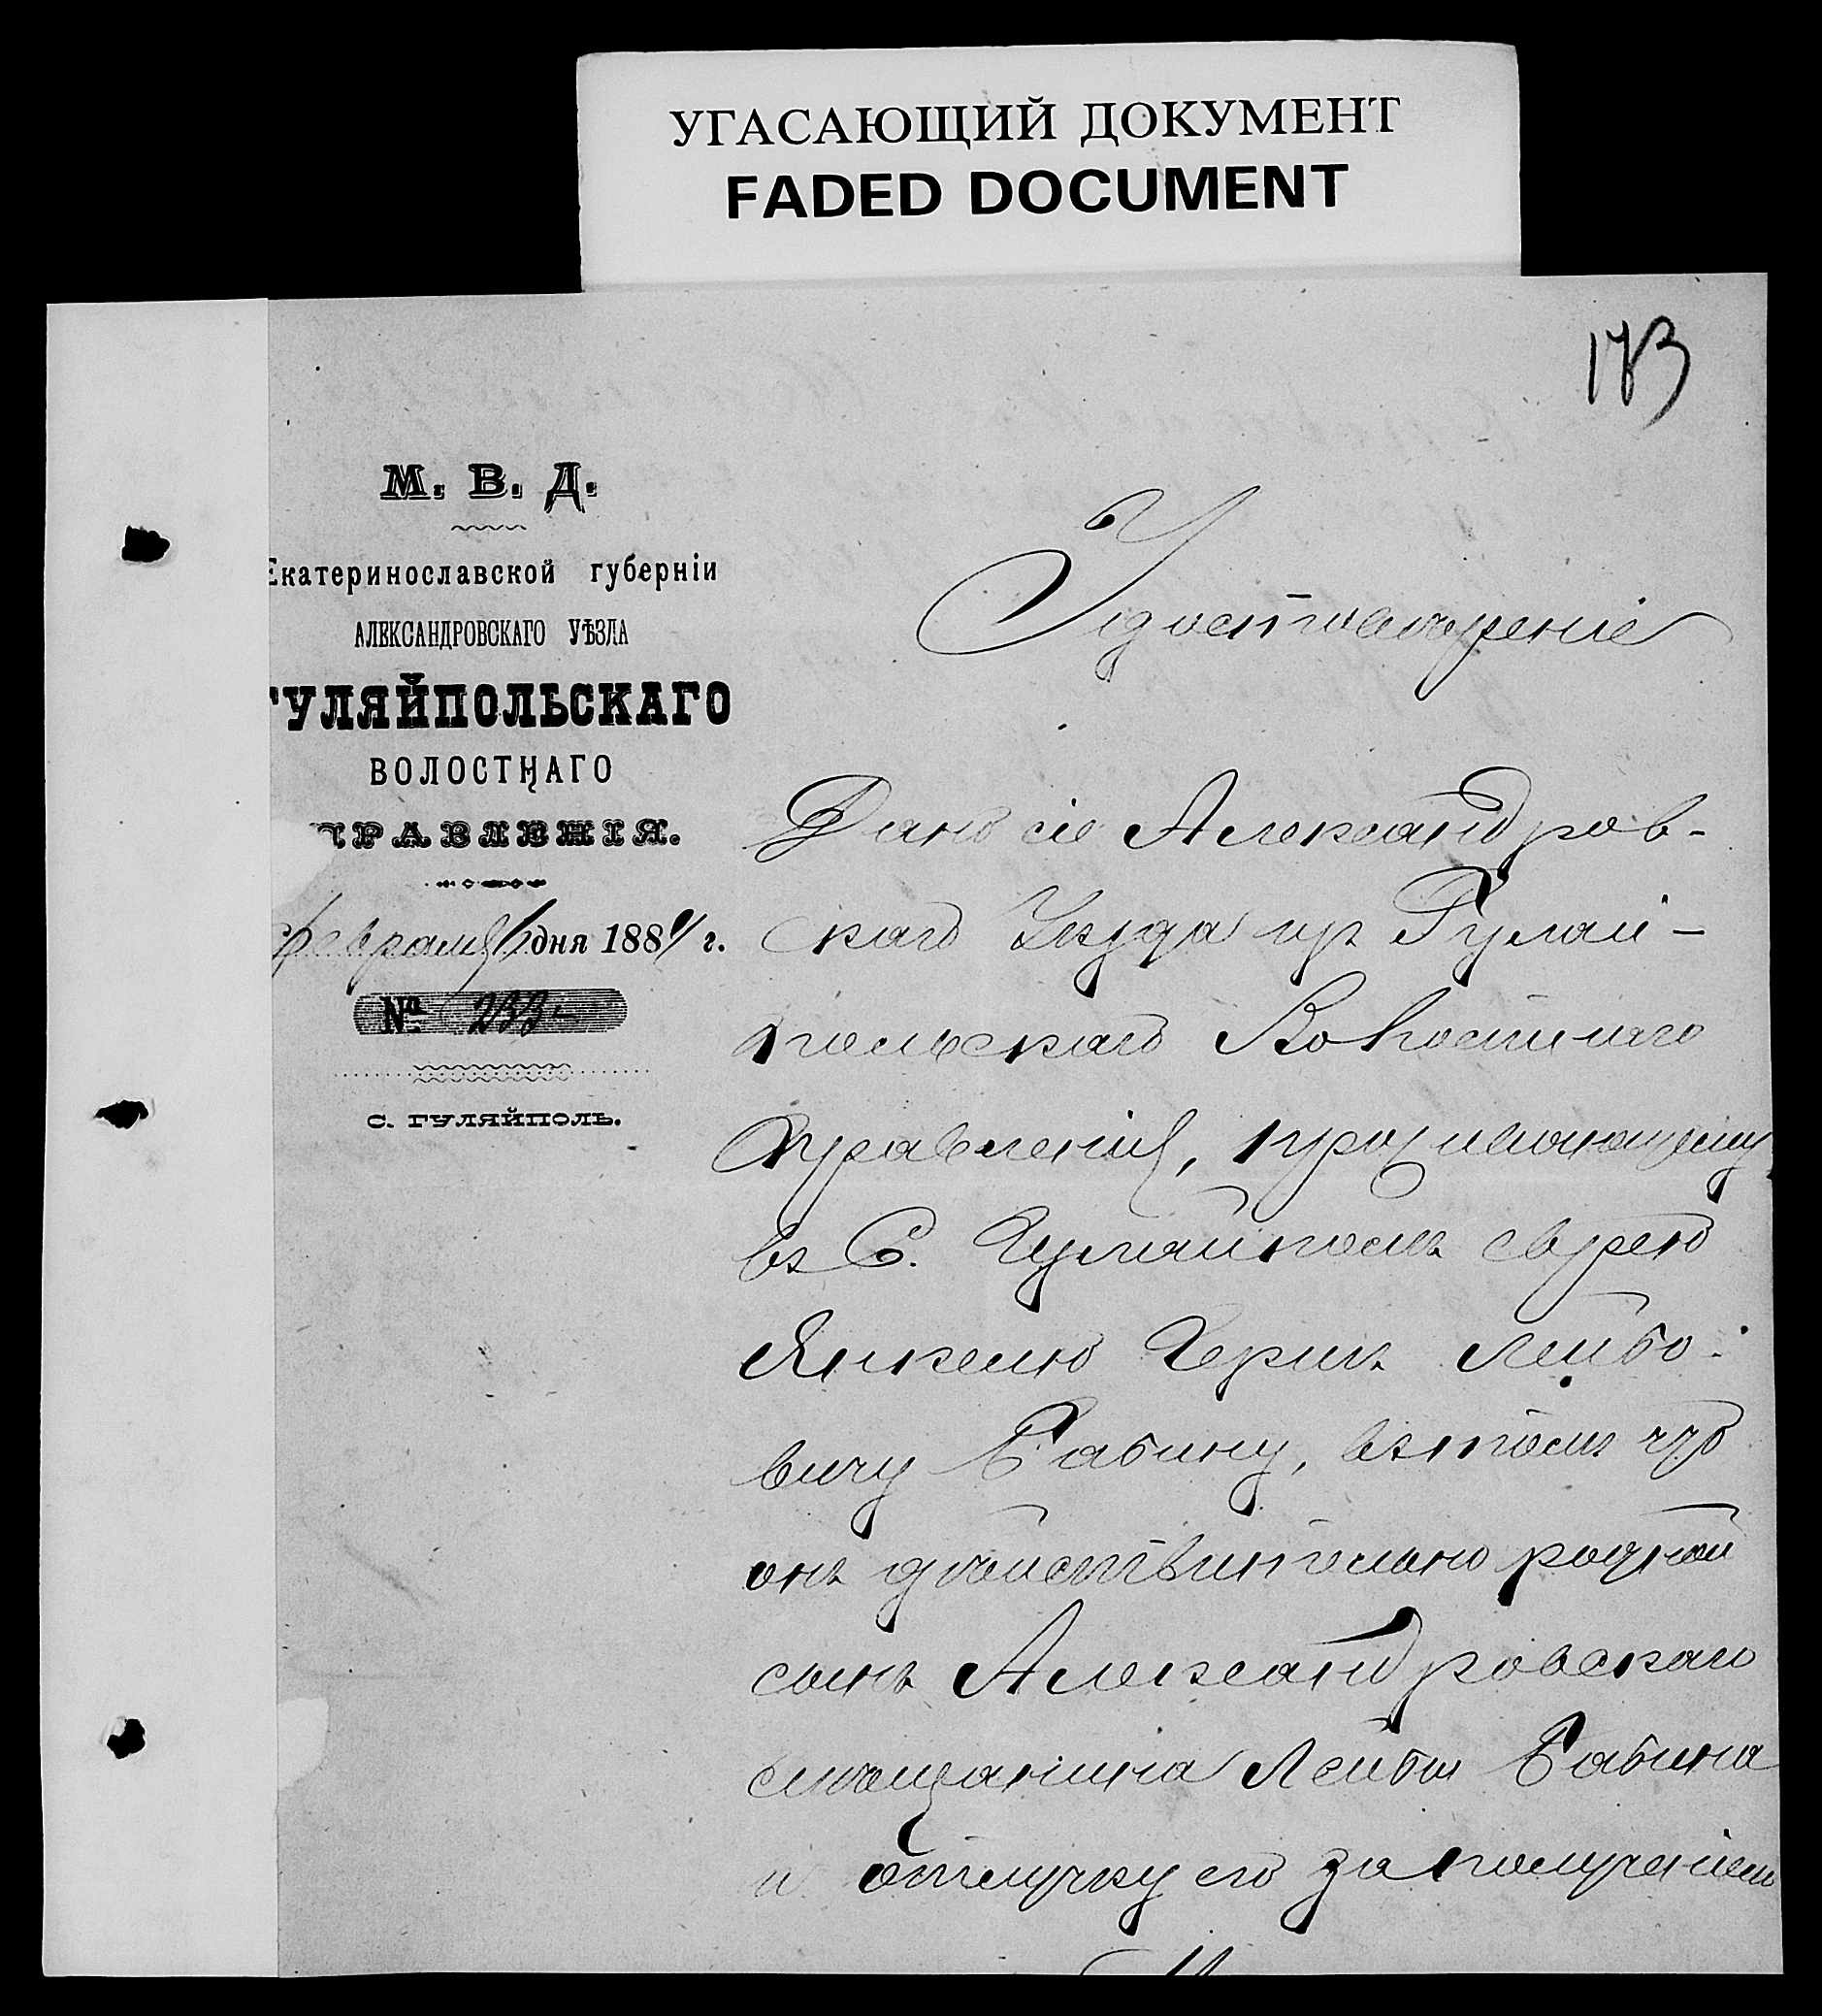 УГАСАЮЩИЙ ДОКУМЕНТ
FADED DOCUMENT
173
М. В. Д.
Екатеринославской губерніи
АЛЕКСАНДРОВСКАГО УѢЗДА
ГУЛЯЙПОЛЬСКАГО
ВОЛОСТНАГО
ПРАВЛЕНІЯ.
февраля дня 188 г.
№ 233
С. ГУЛЯЙПОЛЬ.
Удостовѣреніе
Дано сіе Александров-
скаго Уѣзда изъ Гуляй-
польскаго Волостнаго
Правленія, проживающему
въ С. Гуляйполѣ еврею
Янкелю Гершъ Лейбо-
вичу Рабину, въ томъ что
онъ дѣйствительно родной
сынъ Александровскаго
мѣщанина Лейбы Рабина
и отлучку его за полученіемъ